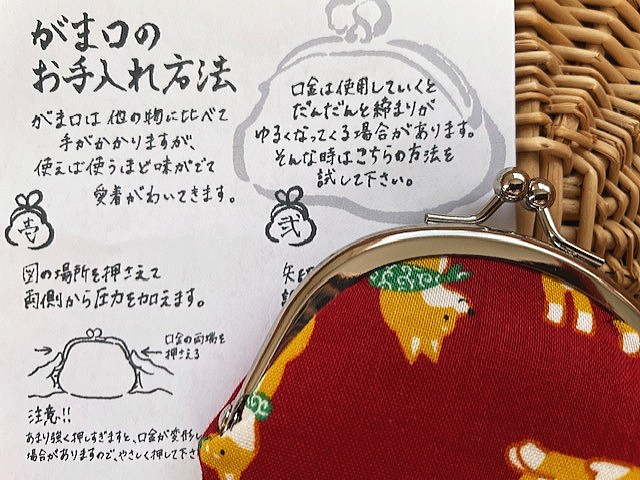 がま口の
お手入れ方法
がま口は他の物に比べて
手がかかりますが、
使えば使うほど味がでて
愛着がわいてきます。
口金は使用していくと
だんだんと締まりが
ゆるくなってくる場合があります。
そんな時はこちらの方法を
試して下さい。
壱
図の場所を押さえて
両側から圧力を加えます。
口金の両端を
押さえる
注意!!
あまり強く押しすぎますと、口金が変形し
場合がありますので、やさしく押して下さ
弐
矢印